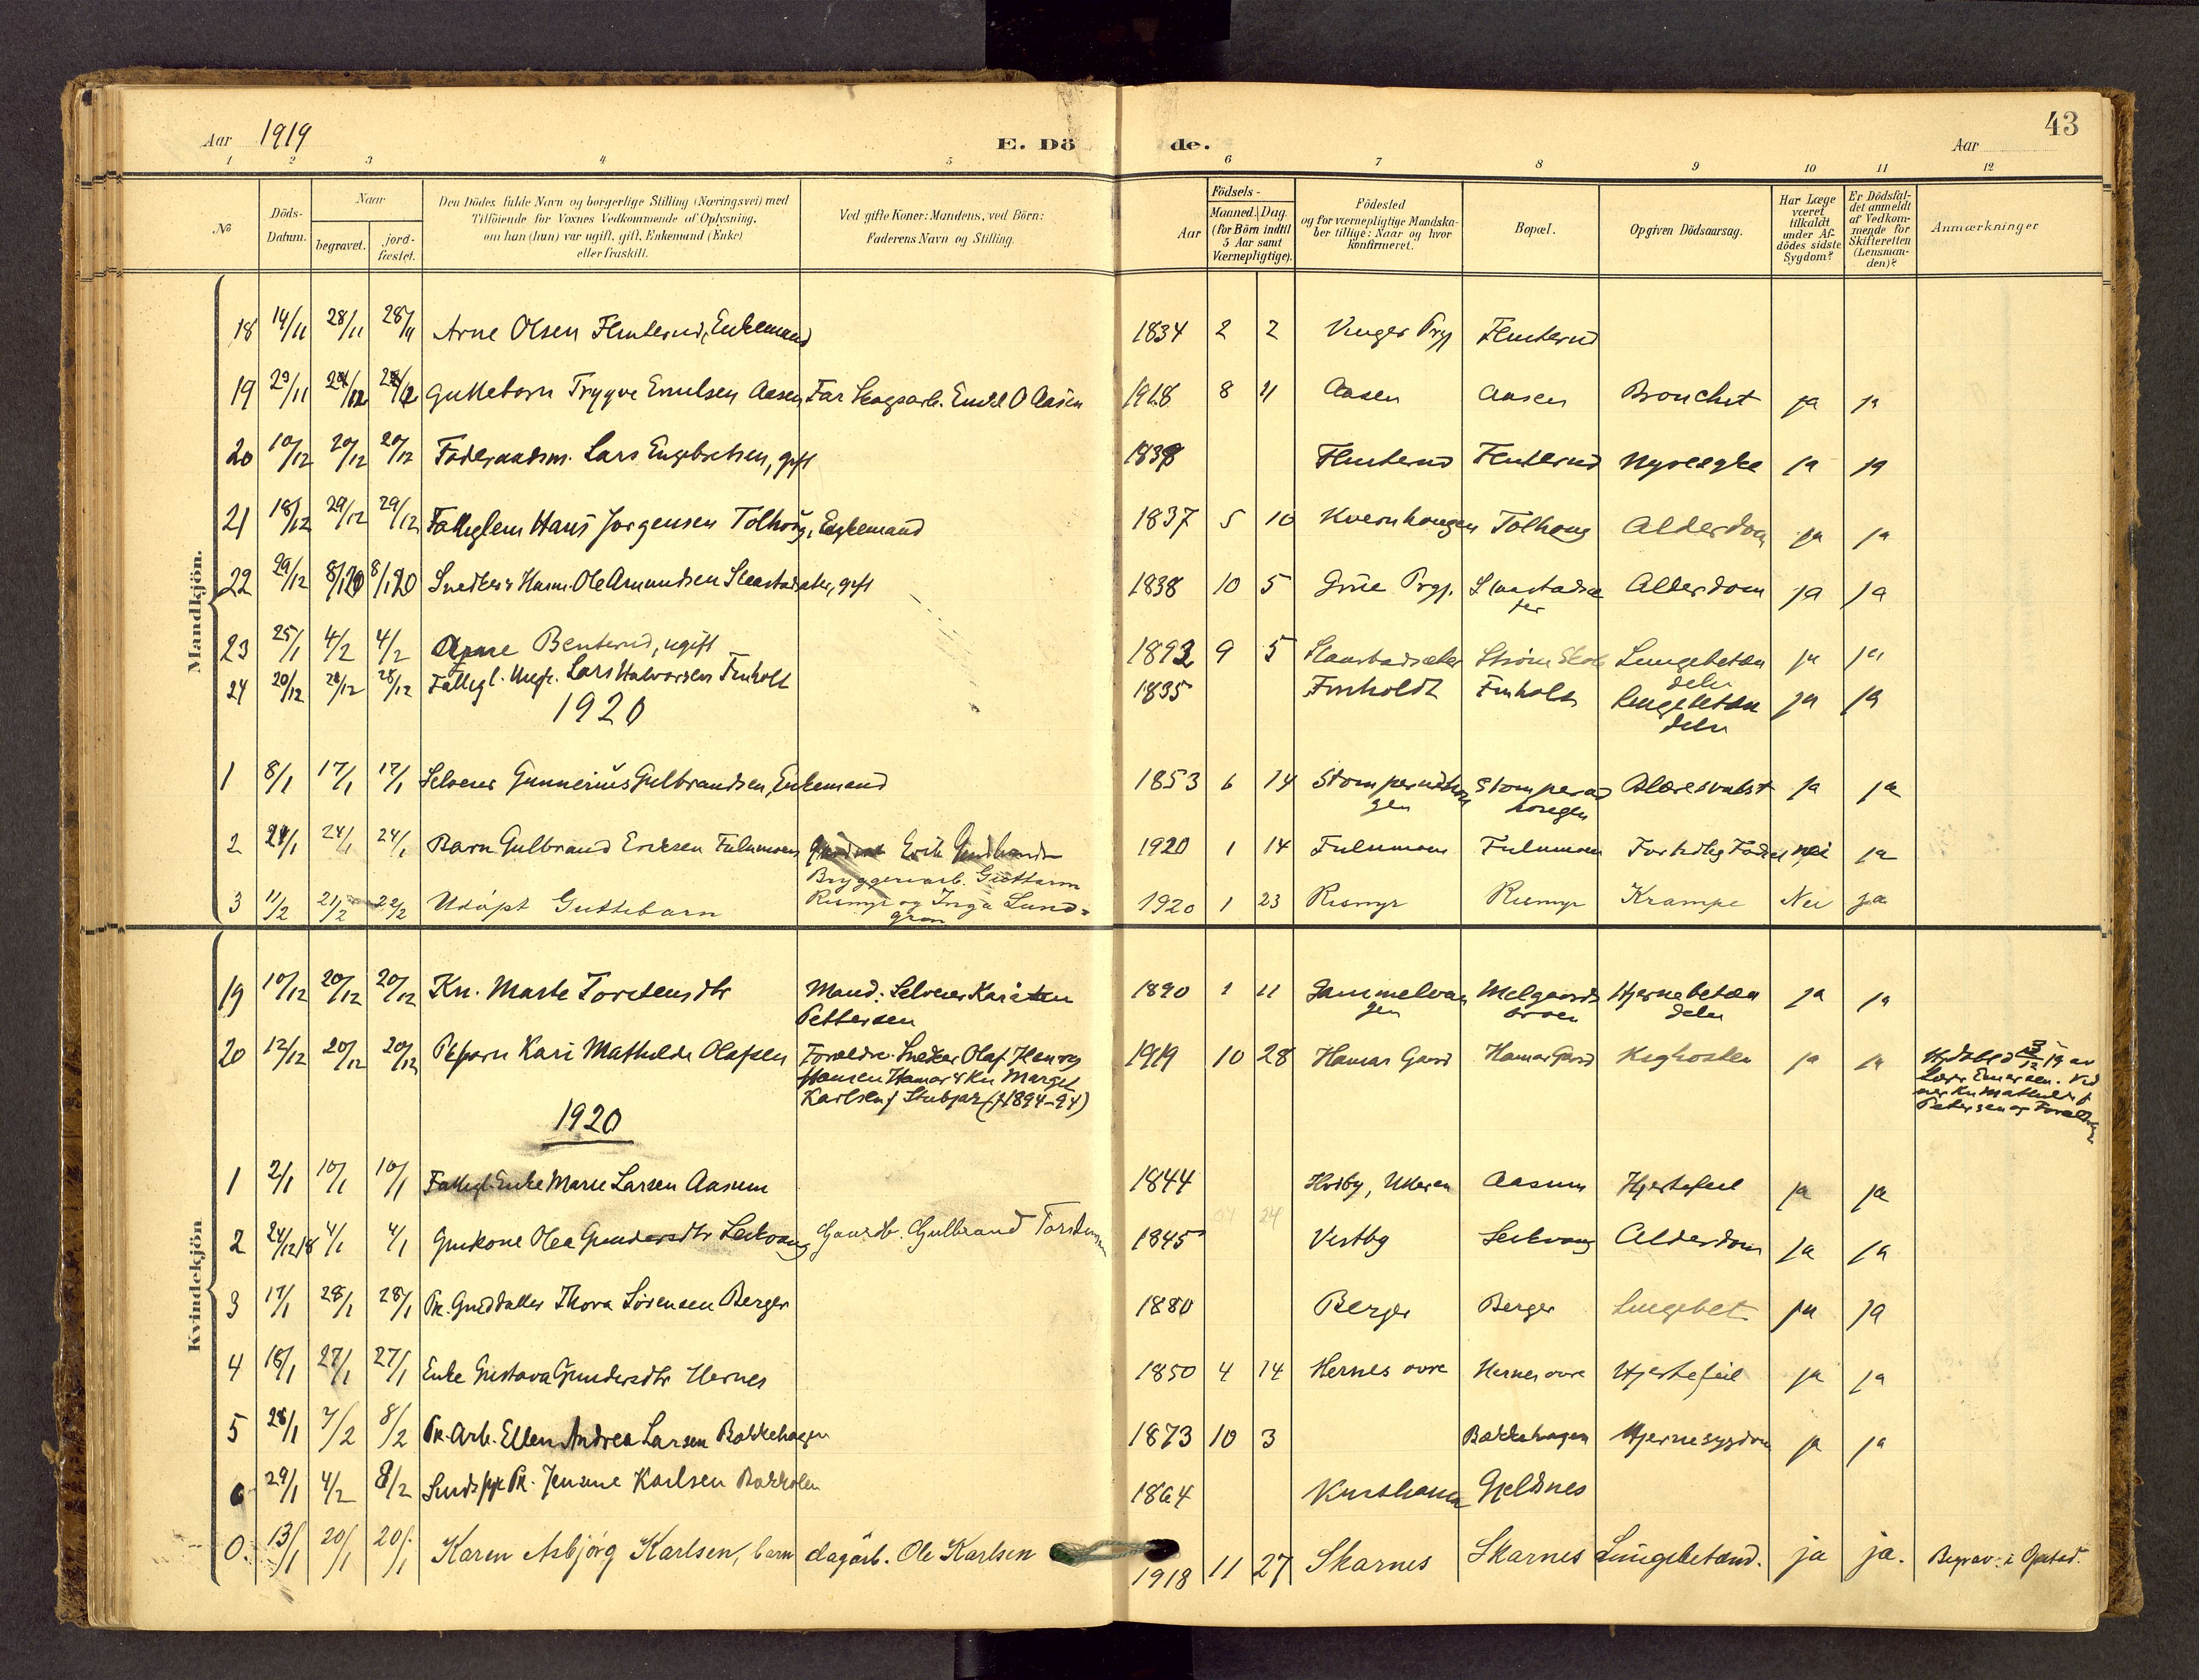 Aar 1919
E. Dö
de.
Aar
43
1 2 3 4 5 6 7 8 9 10 11 12
No
Döds-
Datum.
Naar
begravet.
jord-
fæstet.
Den Dödes fulde Navn og borgerlige Stilling (Næringsvei) med
Tilföiende for Voxnes Vedkommende af Oplysning,
om han (hun) var ugift, gift, Enkemand (Enke)
eller fraskilt.
Ved gifte Koner: Mandens, ved Börn:
Faderens Navn og Stilling.
Aar
Födsels-
Maaned. Dag.
(for Börn indtil
5 Aar samt
Værnepligtige).
Födested
og for værnepligtige Mandska-
ber tillige: Naar og hvor
konfirmeret.
Bopæl.
Opgiven Dödsaarsag.
Har Læge
været
tilkaldt
under Af-
dödes sidste
Sygdom?
Er Dödsfal-
det anmeldt
af Vedkom-
mende for
Skifteretten
(Lensman-
den)?
Anmærkninger
Mandkjön.
18 14/11 28/11 28/11 Arne Olsen Flinterud, Enkemand 1834 2 2 Vinger Prgj Flinterud
19 29/11 Guttebarn Trygve Emilsen Aasen Far Skogsarb. Emil O Aasen 1918 8 11 Aasen Aasen Bronchit ja ja
20 10/12 20/12 20/12 Föderaadsm. Lars Engebretsen, gift 1838 Flinterud Flinterud Nyresyke ja ja
21 18/12 29/12 29/12 Fattiglem Hans Jorgensen Tolhoug, Enkemand 1837 5 10 Kvernhaugen Tolhoug Alderdom ja ja
22 29/12 8/1 20 8/1 20 Snedker & Husm. Ole Amundsen Slaastadsæter, gift 1838 10 5 Grue Prgj. Slaastadsæ
ter Alderdom ja ja
23 25/1 4/2 4/2 Arne Benterud, ugift 1892 9 5 Slaastadsæter Ström Lungebetæn
delse ja ja
24 20/12 28/12 28/12 Fattigl. Ungk. Lars Halvorsen Finholt 1835 Finholdt Finholt Lungebetæn
delse ja ja
1920
1 8/1 17/1 17/1 Selveier Gunnerius Gulbrandsen, Enkemand 1853 6 14 Stomperudhou
gen Stomperud
hougen Blæresvulst ja ja
2 24/1 24/1 24/1 Barn Gulbrand Eriksen Fulumoen Erik 1920 1 14 Fulumoen Fulumoen For tidlig Födsel nei ja
3 11/2 21/2 22/2 Udöpt Guttebarn Bryggeriarb. Guttorm
Rismyr og Inga Lund=
gren 1920 1 23 Rismyr Rismyr Krampe Nei ja
Kvindekjön
19 10/12 20/12 20/12 Kn. Marte Torstensdtr Mand: Selveier Karsten
Pettersen 1890 1 11 Gammelvan
gen Melgaards
broen Hjernebetæn
delse ja ja
20 12/12 20/12 20/12 Pikebarn Kari Mathilde Olafsen Forældre: Snedker Olaf Henry
Hansen Hamar & Kn Margit
Karlsen f Stubjær (f 1894-94) 1919 10 28 Hamar Gaard Hamar Gaard Kighosten ja ja Hjdöbt 3/12 19 av
Lærer Emersen. Vid
ner Kn Mathilde
Petersen og Forældrene
1920
1 2/1 10/1 10/1 Fattigl. Enke Marie Larsen Aasum 1844 Hvidby, Ulleren Aasum Hjertefeil ja ja
2 24/12 18 4/1 4/1 Gmkone Olea Gundersdtr Leikvang Gaardb. Gulbrand Torstensen 1845 04 24 Vestby Leikvang Alderdom ja ja
3 17/1 28/1 28/1 Pk. Gmddatter Thora Sörensen Berger 1880 Berger Berger Lungebet ja ja
4 18/1 27/1 27/1 Enke Gustava Gundersdtr Hernes 1850 4 14 Hernes ovre Hernes ovre Hjertefeil ja ja
5 28/1 7/2 8/2 Pk. Arb. Ellen Andrea Larsen Bakkehagen 1873 10 3 Bakkehagen Hjernesygdom ja ja
6 29/1 4/2 8/2 Pk. Jensine Karlsen 1864 Gjeldnes
0. 13/1 20/1 20/1 Karen Asbjörg Karlsen, barn dagarb. Ole Karlsen 1918 11 27 Skarnes Skarnes Lungebetænd. ja ja. Begrav. i Opstad.